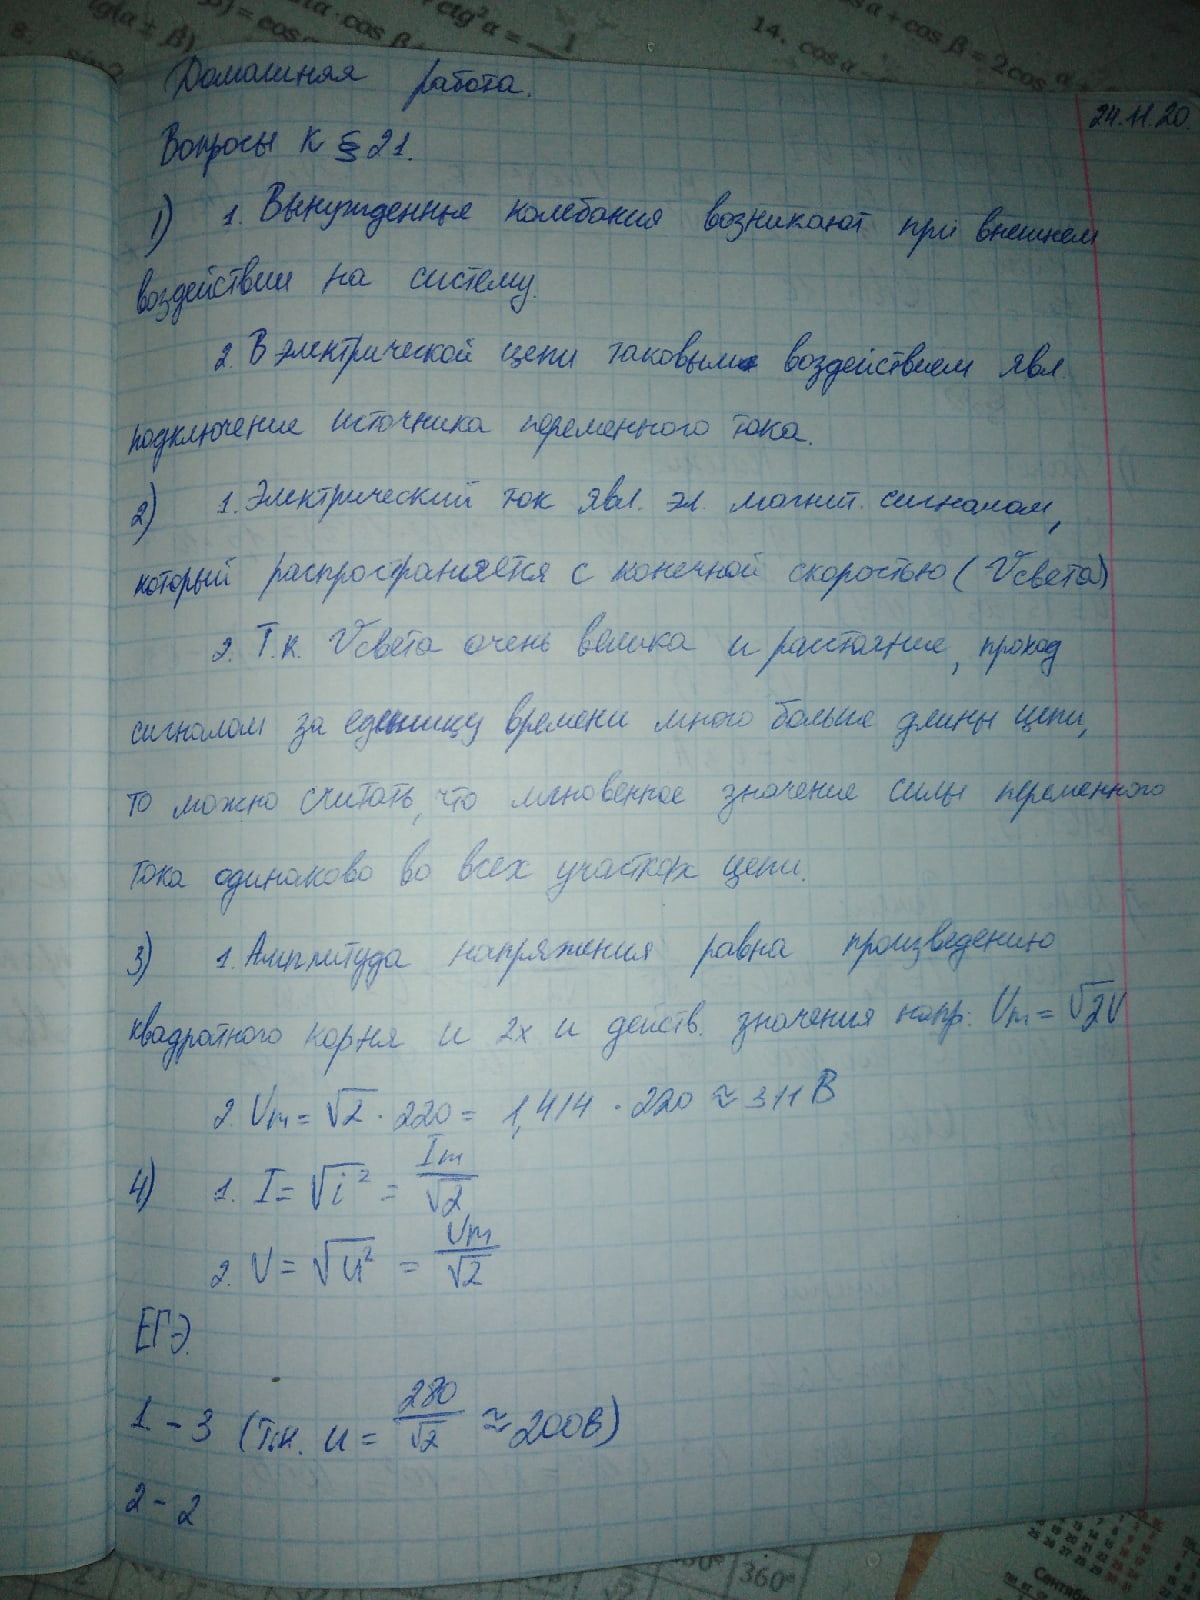 lg(α ± β)
β) = cos
α · cos β
ctg²α = 1
14. cos α -
cos α + cos β = 2cos α +
8.
Домашняя работа.
24.11.20.
Вопросы к § 21.
1) 1. Вынужденные колебания возникают при внешнем
воздействии на систему.
2. В электрической цепи таковыми воздействием явл.
подключение источника переменного тока.
2) 1. Электрический ток явл. эл. магнит. сигналом,
который распространяется с конечной скоростью (Vсвета)
2. Т.к. Vсвета очень велика и расстояние, проход
сигналом за еденицу времени много больше длины цепи,
то можно считать, что мгновенное значение силы переменного
тока одинаково во всех участках цепи.
3) 1. Амплитуда напряжения равна произведению
квадратного корня и 2х и действ. значения напр: Um = √2U
2. Um = √2 · 220 = 1,414 · 220 ≈ 311 В
4) 1. I = √i² = Im/√2
2. U = √u² = Um/√2
ЕГЭ.
1 - 3 (т.к. u = 280/√2 ≈ 200В)
2 - 2
360°
Сентябр